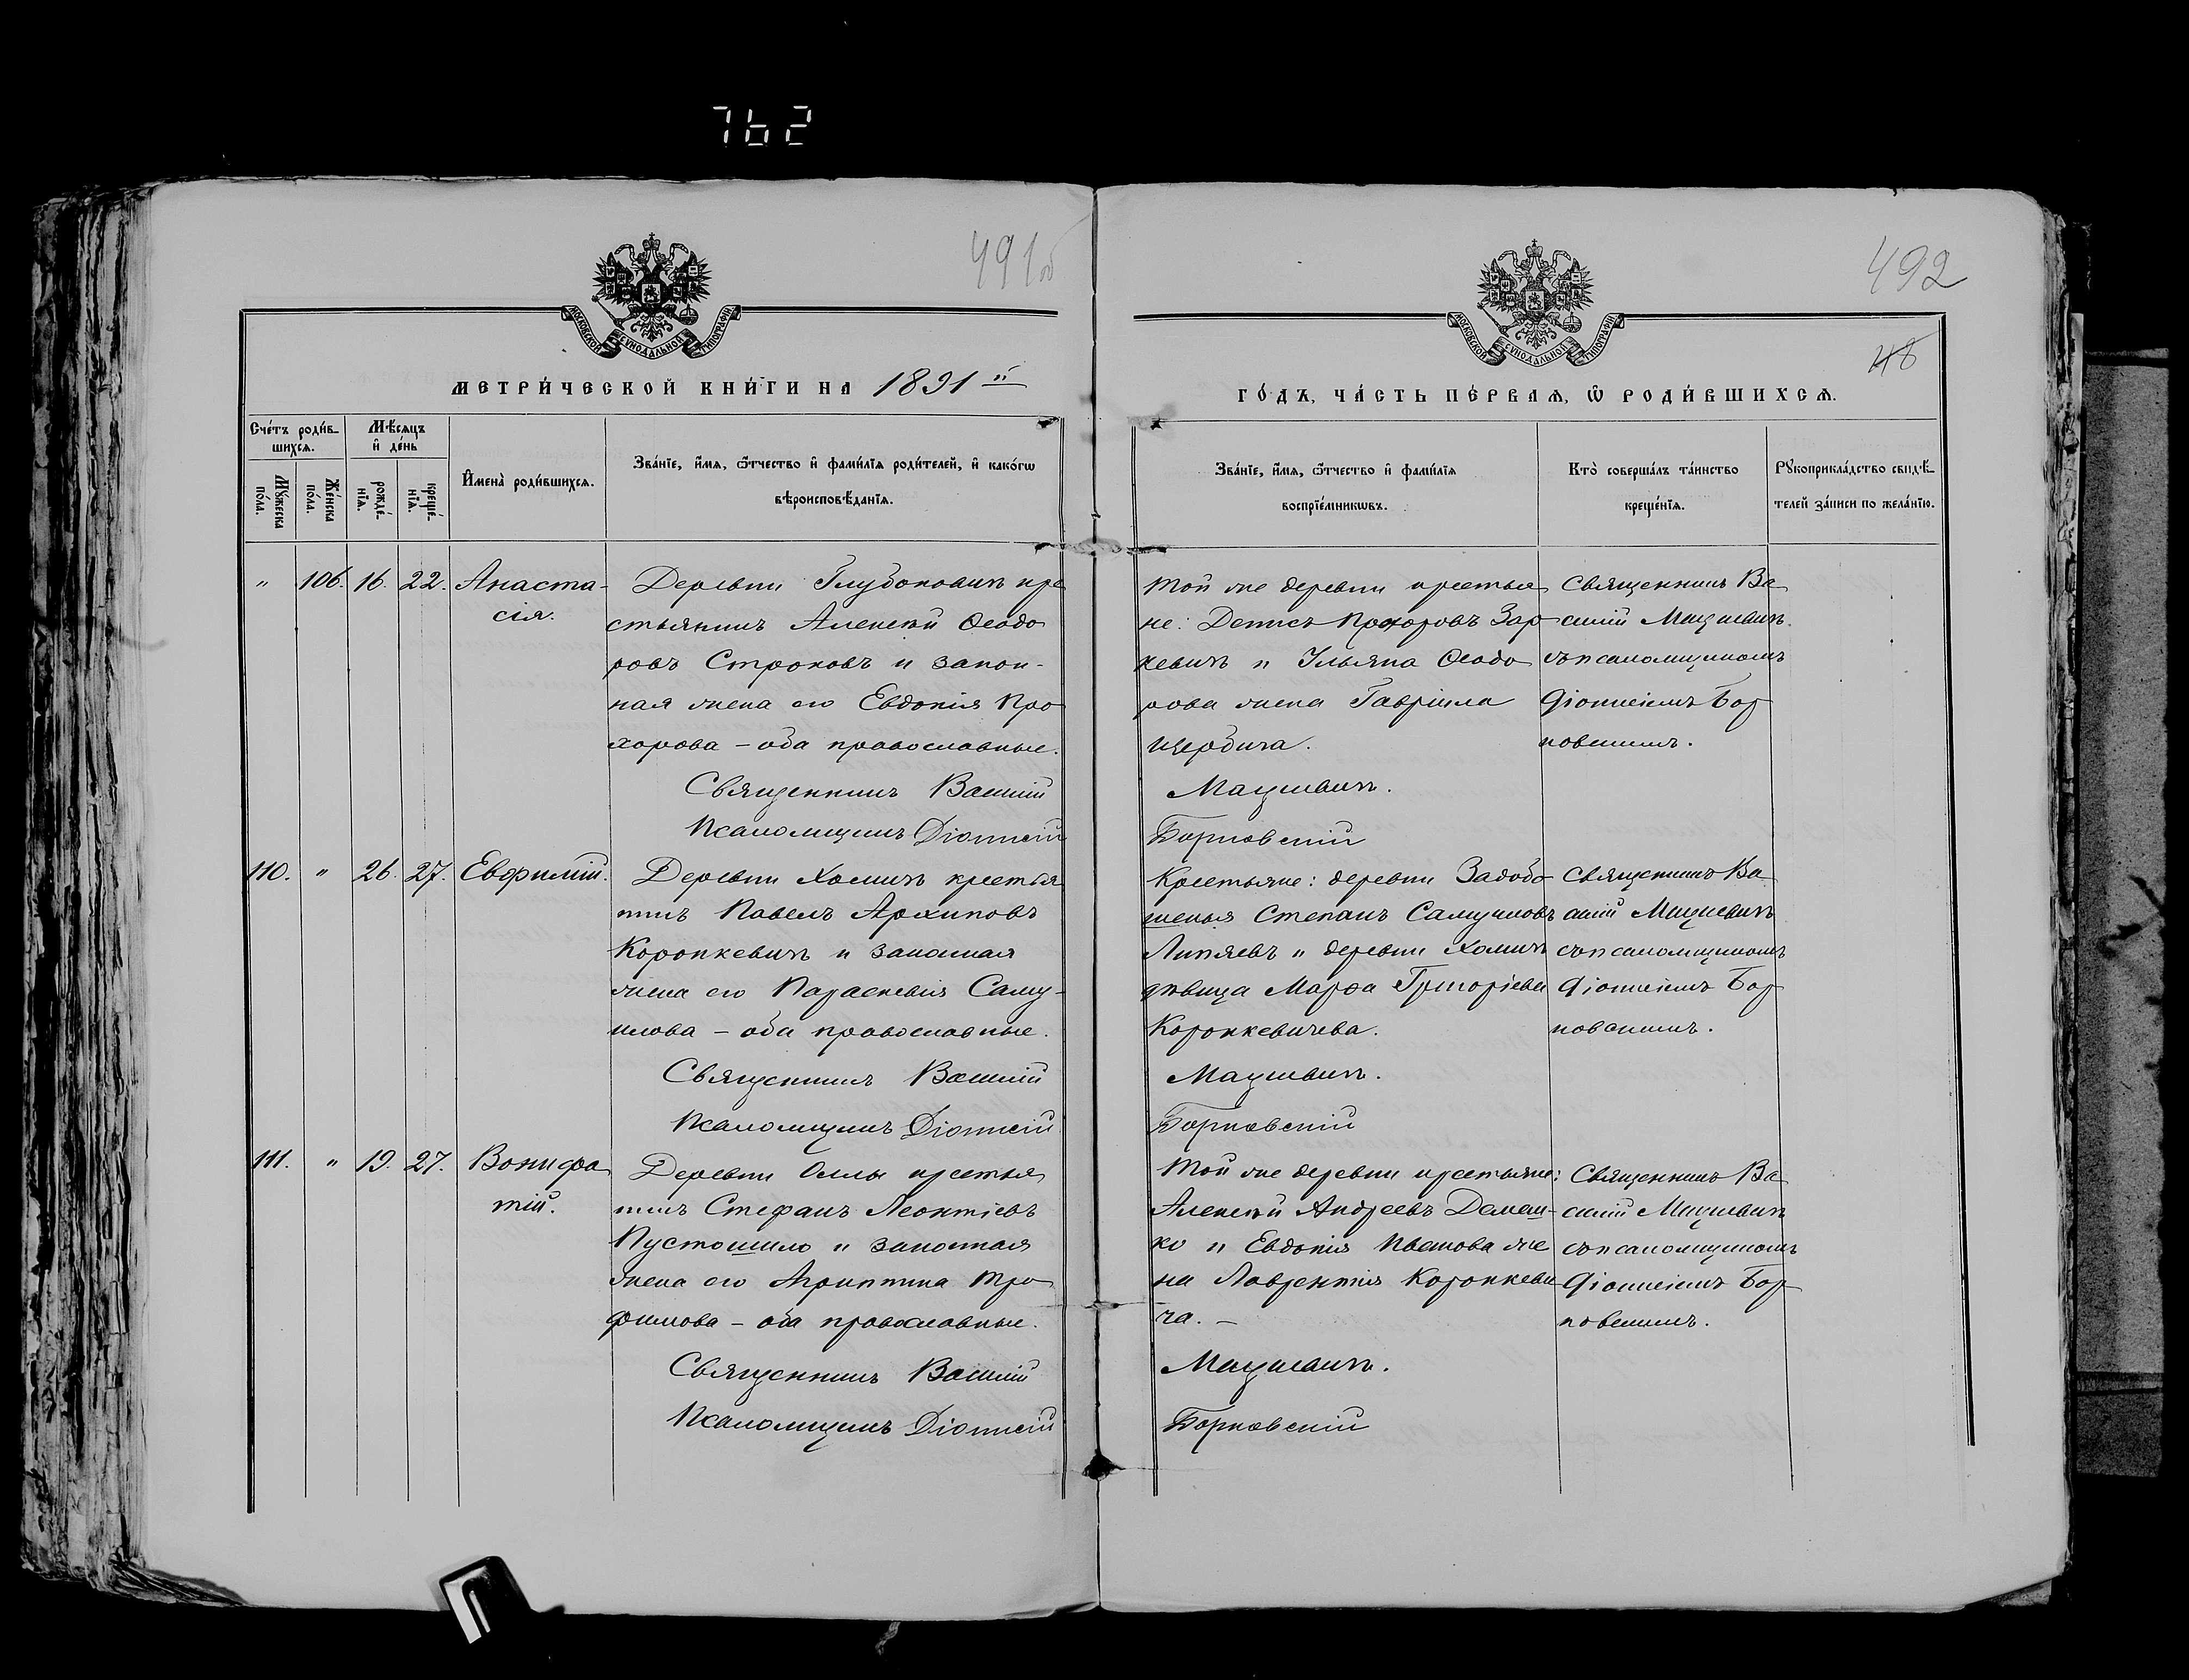 762
491об
492
48
МОСКОВСКОЙ СѴНОДАЛЬНОЙ ТИПОГРАФІИ
МОСКОВСКОЙ СѴНОДАЛЬНОЙ ТИПОГРАФІИ
МЕТРИ́ЧЕСКОЙ КНИ́ГИ НА 1891 й
ГО́ДЪ, ЧА́СТЬ ПЕ́РВАѦ, Ѡ҆ РОДИ́ВШИХСѦ.
Сче́тъ роди́в-
шихсѧ.
Мѣ́сѧцъ
и҆ де́нь
Мꙋ́жеска
по́ла.
Же́нска
по́ла.
рожде́-
нїѧ.
креще́-
нїѧ.
И҆мена̀ роди́вшихсѧ.
Зва́нїе, и҆́мѧ, ѻ҆́тчество и҆ фами́лїѧ роди́телей, и҆ како́гѡ
вѣроисповѣ́данїѧ.
Зва́нїе, и҆́мѧ, ѻ҆́тчество и҆ фами́лїѧ
воспрїе́мникѡвъ.
Кто̀ соверша́лъ та́инство
креще́нїѧ.
Рꙋкоприкла́дство свидѣ́-
телей за́писи по жела́нїю.
" 106. 16. 22. Анаста-
сія.
Деревни Глубоковичъ кре
стьянинъ Алексѣй Ѳеодо
ровъ Строковъ и закон-
ная жена его Евдокія Про
хорова – оба православные.
Священникъ Василій
Псаломщикъ Діонисій
Той же деревни крестья
не: Денисъ Прохоровъ Зар
кевичъ и Ульяна Ѳеодо
рова жена Гавріила
Щербича.
Мацкевичъ.
Борковскій
Священникъ Ва
силій Мацкевичъ
съ псаломщикомъ
Діонисіемъ Бор
ковскимъ.
110. " 26. 27. Евфимій.
Деревни Хомичъ крестья
нинъ Павелъ Архиповъ
Коронкевичъ и законная
жена его Параскевія Саму-
илова – оба православные.
Священникъ Василій
Псаломщикъ Діонисій
Крестьяне: деревни Задобо
шенья Степанъ Самуиловъ
Липяевъ и деревни Хомичъ
дѣвица Марѳа Григоріева
Коронкевичева.
Мацкевичъ.
Борковскій
Священникъ Ва
силій Мацкевичъ
съ псаломщикомъ
Діонисіемъ Бор
ковскимъ.
111. " 19. 27. Вонифа
тій.
Деревни Оллы крестья
нинъ Стефанъ Леонтіевъ
Пустошило и законная
жена его Агриппина Тро
фимова – оба православные.
Священникъ Василій
Псаломщикъ Діонисій
Той же деревни крестьяне:
Алексѣй Андреевъ Демеш-
ко и Евдокія жe
на Лаврентія Коронкеви
ча. –
Мацкевичъ.
Борковскій
Священникъ Ва
силій Мацкевичъ
съ псаломщикомъ
Діонисіемъ Бор
ковскимъ.